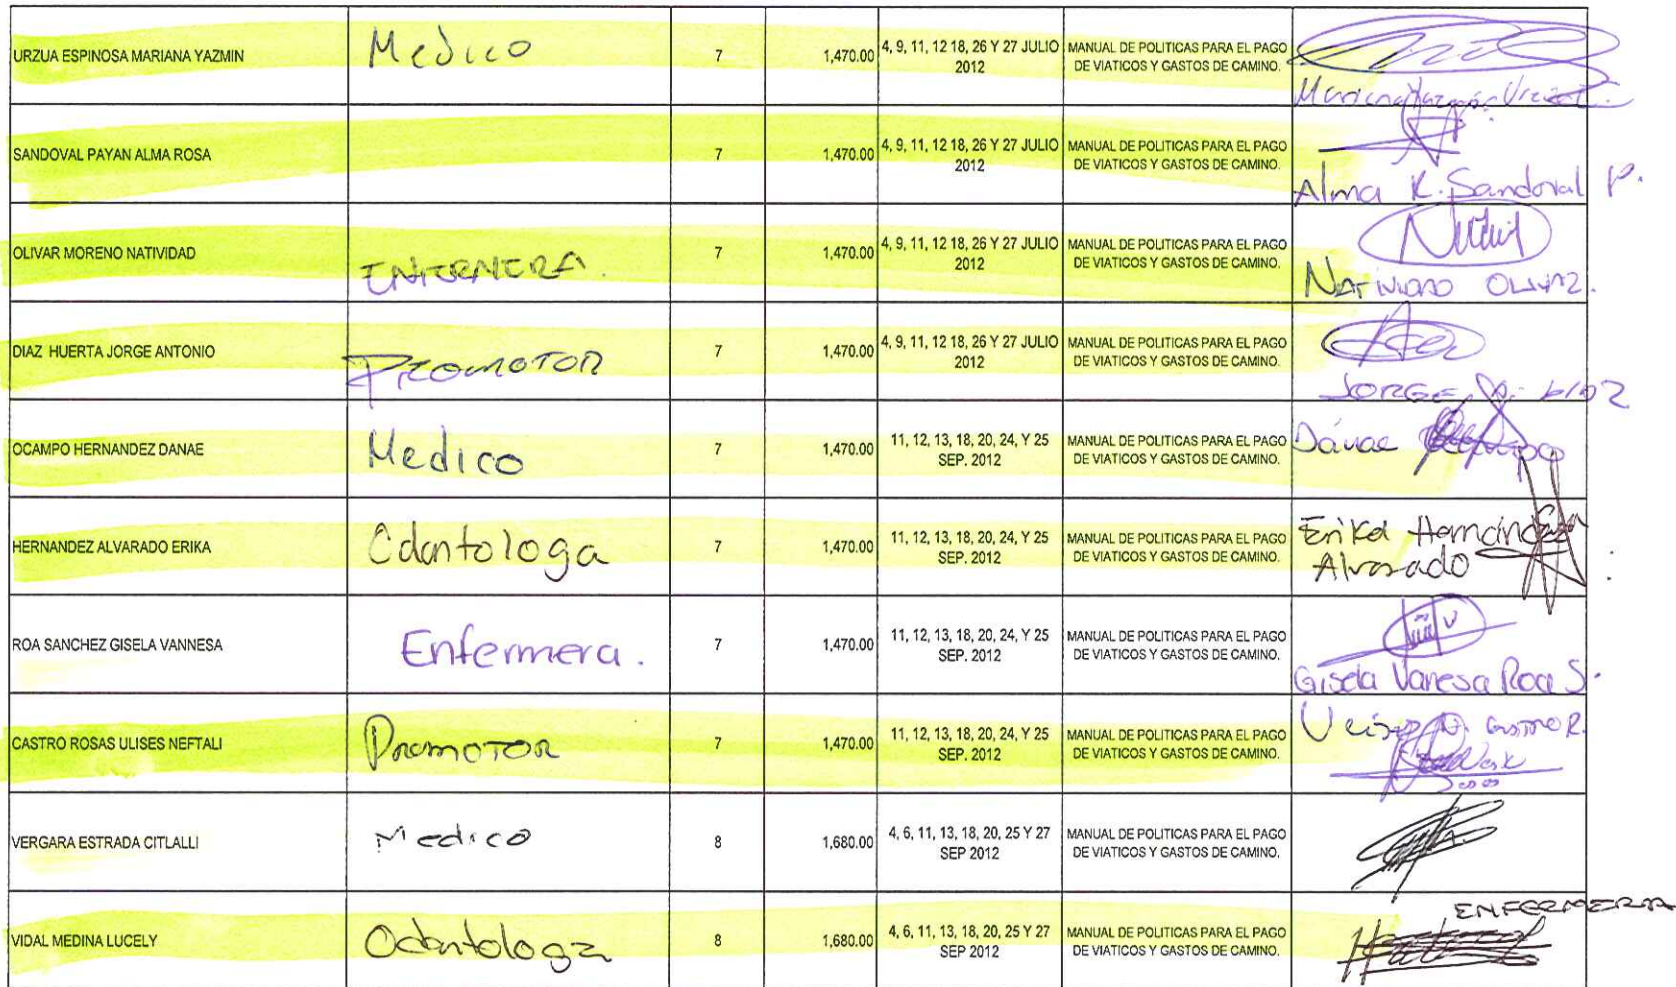 URZUA ESPINOSA MARIANA YAZMIN
Medico
7
1,470.00
4, 9, 11, 12 18, 26 Y 27 JULIO
2012
MANUAL DE POLITICAS PARA EL PAGO
DE VIATICOS Y GASTOS DE CAMINO.
Mariana
SANDOVAL PAYAN ALMA ROSA
7
1,470.00
4, 9, 11, 12 18, 26 Y 27 JULIO
2012
MANUAL DE POLITICAS PARA EL PAGO
DE VIATICOS Y GASTOS DE CAMINO.
Alma R. Sandoval P.
OLIVAR MORENO NATIVIDAD
ENFERMERA.
7
1,470.00
4, 9, 11, 12 18, 26 Y 27 JULIO
2012
MANUAL DE POLITICAS PARA EL PAGO
DE VIATICOS Y GASTOS DE CAMINO.
NATIVIDAD OLIVAR.
DIAZ HUERTA JORGE ANTONIO
PROMOTOR
7
1,470.00
4, 9, 11, 12 18, 26 Y 27 JULIO
2012
MANUAL DE POLITICAS PARA EL PAGO
DE VIATICOS Y GASTOS DE CAMINO.
JORGE
OCAMPO HERNANDEZ DANAE
Medico
7
1,470.00
11, 12, 13, 18, 20, 24, Y 25
SEP. 2012
MANUAL DE POLITICAS PARA EL PAGO
DE VIATICOS Y GASTOS DE CAMINO.
Dánae
HERNANDEZ ALVARADO ERIKA
Odontologa
7
1,470.00
11, 12, 13, 18, 20, 24, Y 25
SEP. 2012
MANUAL DE POLITICAS PARA EL PAGO
DE VIATICOS Y GASTOS DE CAMINO.
Erika Hernández
Alvarado
ROA SANCHEZ GISELA VANNESA
Enfermera.
7
1,470.00
11, 12, 13, 18, 20, 24, Y 25
SEP. 2012
MANUAL DE POLITICAS PARA EL PAGO
DE VIATICOS Y GASTOS DE CAMINO.
Gisela Vanesa Roa S.
CASTRO ROSAS ULISES NEFTALI
PROMOTOR
7
1,470.00
11, 12, 13, 18, 20, 24, Y 25
SEP. 2012
MANUAL DE POLITICAS PARA EL PAGO
DE VIATICOS Y GASTOS DE CAMINO.
Ulises N. CASTRO R.
VERGARA ESTRADA CITLALLI
Medico
8
1,680.00
4, 6, 11, 13, 18, 20, 25 Y 27
SEP 2012
MANUAL DE POLITICAS PARA EL PAGO
DE VIATICOS Y GASTOS DE CAMINO.
VIDAL MEDINA LUCELY
Odontologa
8
1,680.00
4, 6, 11, 13, 18, 20, 25 Y 27
SEP 2012
MANUAL DE POLITICAS PARA EL PAGO
DE VIATICOS Y GASTOS DE CAMINO.
ENFERMERA